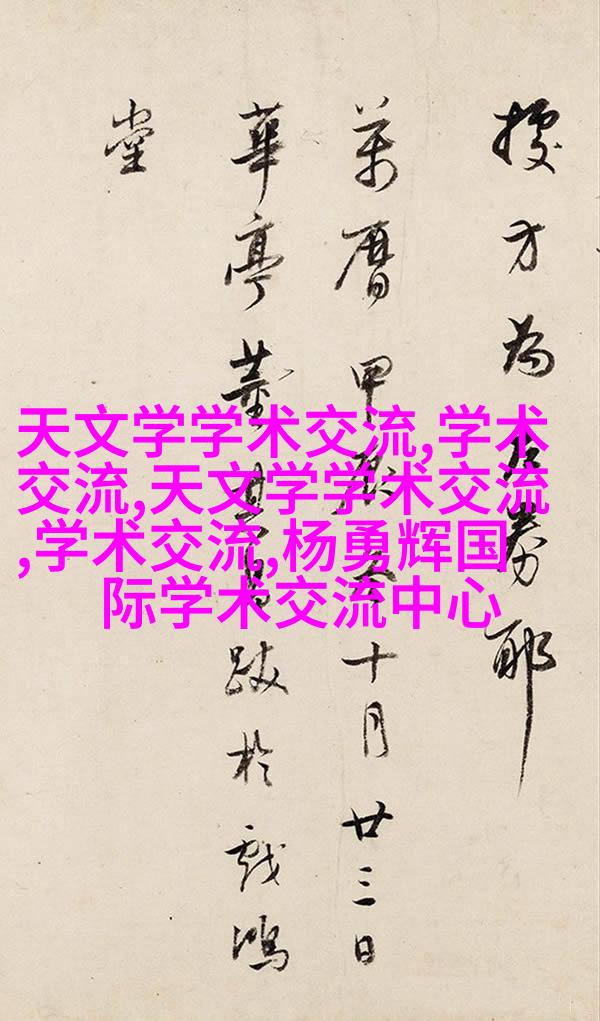 方為左券耶
萬曆甲辰十月廿三日
華亭董其昌跋於戲鴻
堂
天文学学术交流,学术
交流,天文学学术交流
,学术交流,杨勇辉国
际学术交流中心